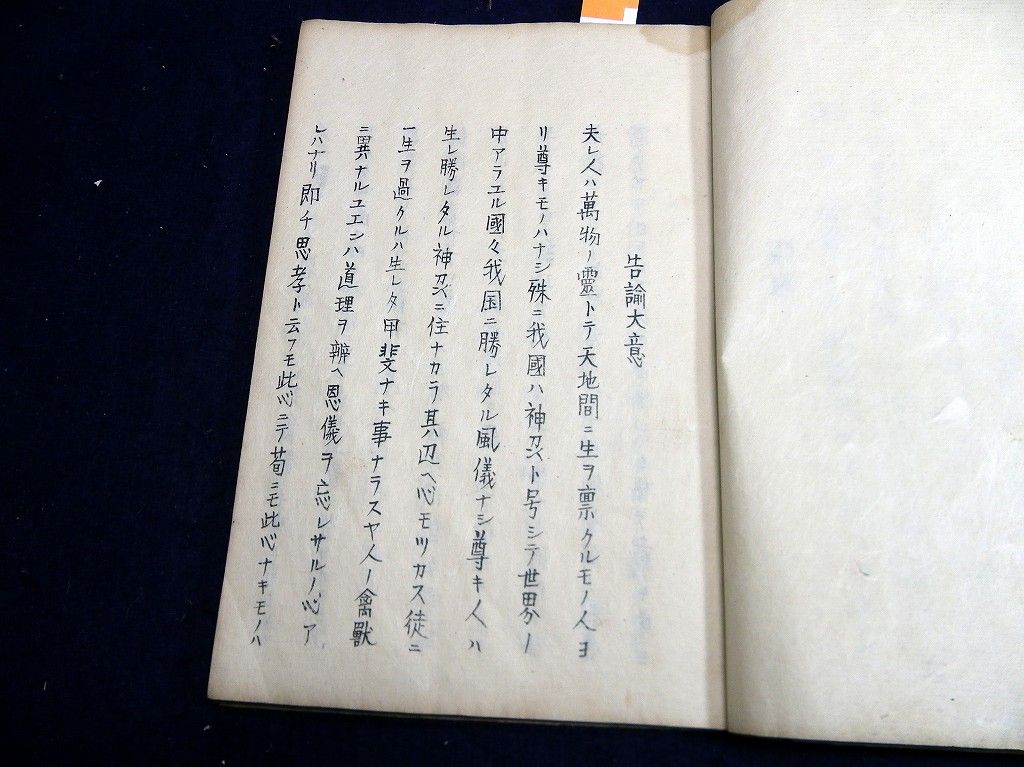 告諭大意
夫レ人ハ萬物ノ靈トテ天地間ニ生ヲ禀クルモノ人ヨ
リ尊キモノハナシ殊ニ我國ハ神刕ト号シテ世界ノ
中アラユル國々我国ニ勝レタル風儀ナシ尊キ人ハ
生レ勝レタル神刕ニ住ナカラ其辺ヘ心モツカス徒ニ
一生ヲ過クルハ生レタ甲斐ナキ事ナラスヤ人ノ禽獸
ニ異ナルユエンハ道理ヲ辨ヘ恩儀ヲ忘レサルノ心ア
レハナリ即チ思孝ト云フモ此心ニテ苟ニモ此心ナキモノハ